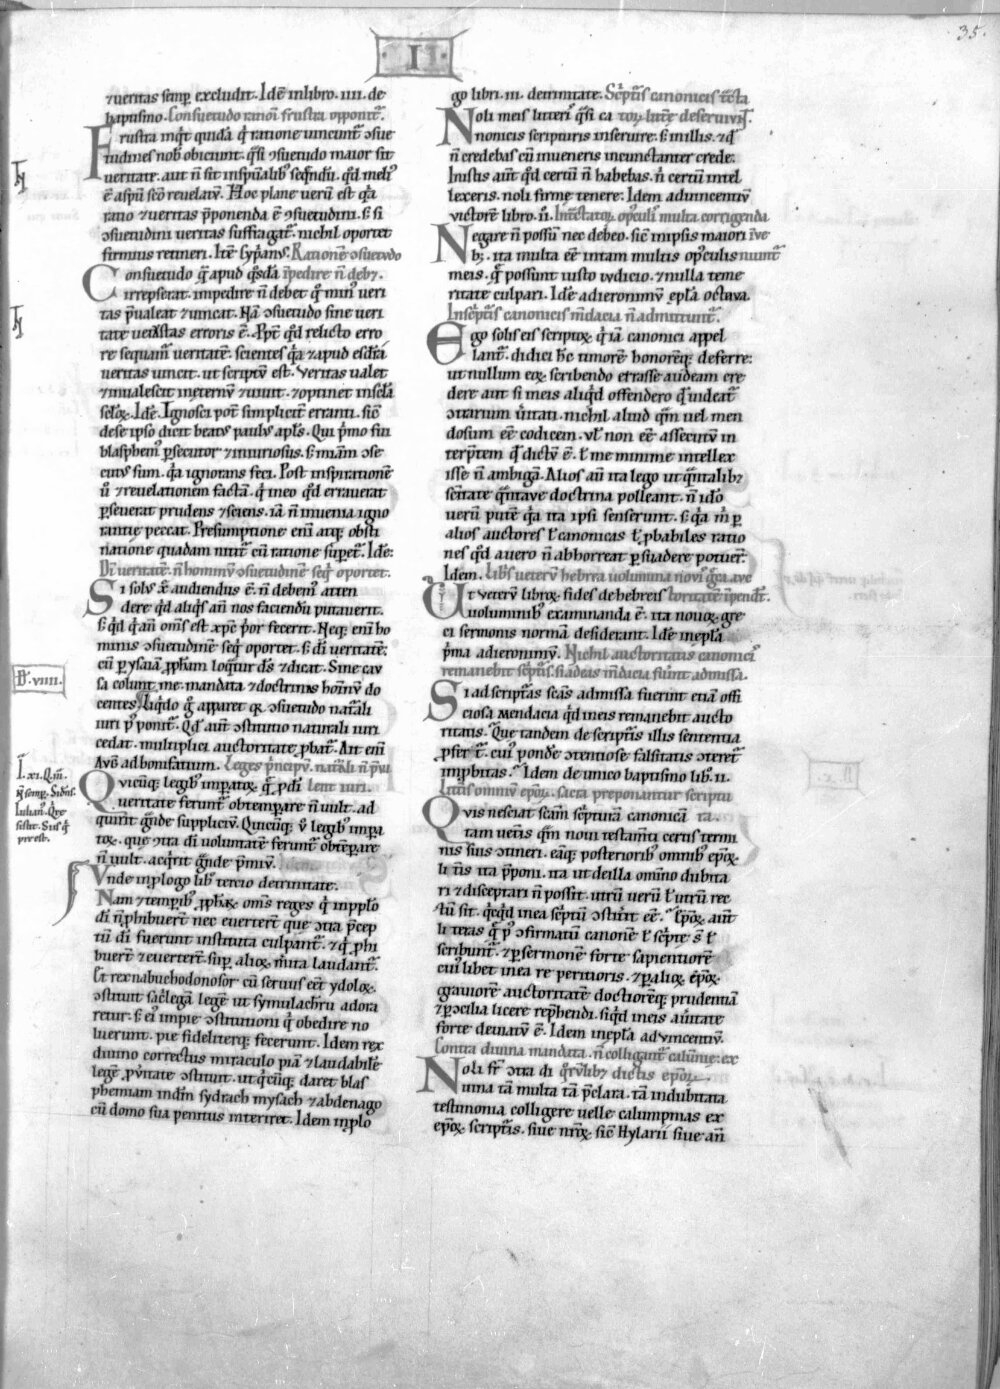 35.
· I ·
⁊ueritas semp̱ excludit. Idē in libro .iiii. de
baptismo. Consuetudo ratoī frustra opponit᷑.
Frustra inqͥt quidā qͥ ratione uincunt᷑ ꝯsue
tudines nob̾ obiciunt. qͣsi ꝯsuetudo maior sit
ueritate. aut ñ sit in spūalib̾ seqͣndū. qͦd meli᷒
ē a spū sc̄o reuelatū. Hoc plane uerū est qͥa
ratio ⁊ueritas p̄ponenda ē ꝯsuetudini. s̄ si
ꝯsuetudini ueritas suffragat᷑. nichil oportet
firmius retineri. Itē Cyp̄anus. Rationē ꝯsuetudo
Consuetudo q̄ apud qͦsdā īpedire ñ debꝫ.
irrepserat. impedire ñ debet qͦ min᷒ ueri
tas p̄ualeat ⁊uincat. Nā ꝯsuetudo sine ueri
tate uetustas erroris ē. Ppt̄ qͦd relicto erro
re sequam᷑ ueritatē. scientes qͥa ⁊apud esdrā
ueritas uincit. ut scriptū est. Veritas ualet
⁊inualescit in eternū ⁊uiuit. ⁊optinet in sc̄la
sc̄loꝝ. Idē. Ignosci pot̄ simplicit̄ erranti. sic̄
de se ipso dicit beatus paulus apl̄s. Qui pͥmo fui
blasphem᷒ ꝑsecutor ⁊iniuriosus. s̄ miām ꝯse
cutus sum. qͥa ignorans feci. Post inspirationē
ū ⁊reuelationem factā. qͥ in eo qͦd errauerat
ꝑseuerat prudens ⁊sciens. iā ñ in uenia igno
rantię peccat. Presumptione enī atqꝫ obsti
natione quadam nitit᷑ cū ratione supet᷑. Idē:
Dī ueritatē. ñ hominū ꝯsuetudinē seqͥ oportet.
Si solus x̄c̄ audiendus ē. ñ debem᷒ atten
dere qͦd aliqͥs añ nos faciendū putauerit.
s̄ qͦd qͥ añ om̄s est xp̄c pͥor fecerit. Neqꝫ enī ho
minis ꝯsuetudinē seqͥ oportet. s̄ dī ueritatē:
cū ꝑ ysaiā ꝓpham loqͣtur d̄s ⁊dicat. Sine cau
sa colunt me. mandata ⁊doctrinas hoīnū do
centes. Liqͥdo gͦ apparet qꝛ ꝯsuetudo natͣli
iuri p᷒ponit᷑. Qd̄ aut̄ ꝯstitutio naturali iuri
cedat. multiplici auctoritate ꝓbat᷑. Ait enī
Aug̾ ad bonifatium. Leges pͥncipū. natͣli ñ p̄ui
Quicūqꝫ legib̾ imꝑatoꝝ. q̄ ꝓ dī lent iuri.
ueritate ferunt᷑ obtemꝑare ñ uult. ad
quirit gͣnde suppliciū. Quicūqꝫ ū legib̾ imꝑa
toꝝ. que ꝯtra dī uoluntatē ferunt᷑ obtēꝑare
ñ uult. acqͥrit gͣnde p̄miū.
Vnde in ꝓlogo lib̾ tercio de trinitate.
Nam ⁊temꝑib̾ ꝓphꝝ. om̄s reges qͥ in pp̄lo
dī ñ ꝓhibuerūt nec euerterūt que ꝯtra p̄cep
tū dī fuerunt instituta culpant᷑. ⁊qͥ ꝓhi
buert̄ ⁊euerterūt. sup̱ alioꝝ m̄ita laudant᷑.
Et rex nabuchodonosor cū seruus eēt ydoloꝝ.
ꝯstituit sacͥlegā legē ut symulachrū adora
retur. s̄ ei᷒ impie ꝯstitutioni qͥ obedire no
luerunt. pie fideliterqꝫ fecerunt. Idem rex
diuino correctus miraculo piā ⁊laudabilē
legē ꝓ u̇itate ꝯstituit. ut qͥcūqꝫ diceret blas
phemiam in dm̄ sydrach mysach ⁊abdenago
cū domo sua penitus interiret. Idem in ꝓlo
D̄. viiii.
go libri .iii. de trinitate. Sc̄pturis canonicis
Noli meis litteris qͣsi ca tractatorum litterę deseruiunt.
nonicis scripturis inseruire. s̄ in illis. ⁊qͦd
ñ credebas cū inueneris incunctanter crede.
In istis aut̄ qͦd certū ñ habebas. ñ certū intel
lexeris. noli firmę tenere. Idem ad uincentiū
uictorē libro .ii. In tractatoꝝ op̱culis multa corrigenda
Negare ñ possū nec debeo. sic̄ in ipsis maiorib̾ inueniunt᷑
ita multa eē in tam multis op̱culis
meis. q̄ possunt iusto iudicio. ⁊nulla teme
ritate culpari. Idē ad ieronimū epl̄a octaua.
In sc̄pturis canonicis m̄dacia ñ admittunt᷑.
Ego solis eis scriptoꝝ qͥ iā canonici appel
lant᷑. didici hc̄ timorē honorēqꝫ deferre:
ut nullum eoꝝ scribendo errasse audeam cre
dere aut si in eis aliqͥd offendero qͦd uideat᷑
ꝯtrarium u̇itati. nichil aliud qͣm uel men
dosum eē codicem. ul̄ non eē assecutū in
terp̄tem qͦd dictū ē. ł me minime intellex
isse ñ ambigā. Alios aū ita lego ut qͣntalibꝫ
sc̄itate qͣntaue doctrina polleant. ñ idō
uerū putē qͥa ita ipsi senserunt. s̄ qͥa mͥ ꝑ
alios auctores ł canonicas ł ꝓbabiles ratio
nes qͦd a uero ñ abhorreat ꝑsuadere potuert̄.
Idem. Libͥs ueterū hebrea uolumina noui gͣca auc
Ut ueterū libroꝝ fides de hebreis toritatē īpendt̄.
uoluminib̾ examinanda ē. ita nouoꝝ gre
ci sermonis normā desiderant. Idē in epl̄a
pͥma ad ieronimū. Nichil auctoritatis canonicis
remanebit sc̄pturis. si ad eas m̄dacia fuerint admissa.
Si ad scripturas sc̄as admissa fuerint etiā offi
ciosa mendacia qͥd in eis remanebit aucto
ritatis. Que tandem de scripturis illis sententia
ꝓferet᷑. cui᷒ pondē ꝯtentiose falsitatis ꝯteret᷑
imp̄bitas. Idem de unico baptismo lib̾ .ii.
Litteris omniū epōꝝ. sacra preponantur scriptu
Quis nesciat scām sc̄pturā canonicā ra.
tam ueteris qͣm noui testam̄ti certis termi
nis suis ꝯtineri. eāqꝫ posteriorib̾ omnib̾ epōꝝ.
litteris ita p̄poni. ita ut de illa omnino dubita
ri ⁊disceptari ñ possit. utrū uerū ł utrū rec
tū sit. qͥcqͥd in ea sc̄ptū ꝯstiterit eē. Epōꝝ aut̄
litteras q̄ p᷒ ꝯfirmatū canonē ł sc̄pte s̄t ł
scribunt᷑. ⁊ꝑ sermonē forte sapientiorē
cui᷒libet in ea re peritioris. ⁊ꝑ alioꝝ epōꝝ.
grauiorē auctoritatē doctiorēqꝫ prudentiā
⁊ꝑ ꝯcilia licere rep̄hendi. si qͥd in eis a u̇itate
forte deuiatū ē. Idem in epl̄a ad uincentiū.
Contra diuina mandata. ñ colligant᷑ calūnię. ex
Noli fr̄ ꝯtra di qͥbuslibꝫ dictis epōꝝ.
uina tā multa tā p̄clara. tā indubitata
testimonia colligere uelle calumpnias ex
epōꝝ scripturis. siue nr̄oꝝ. sic̄ Hylarii siue añ